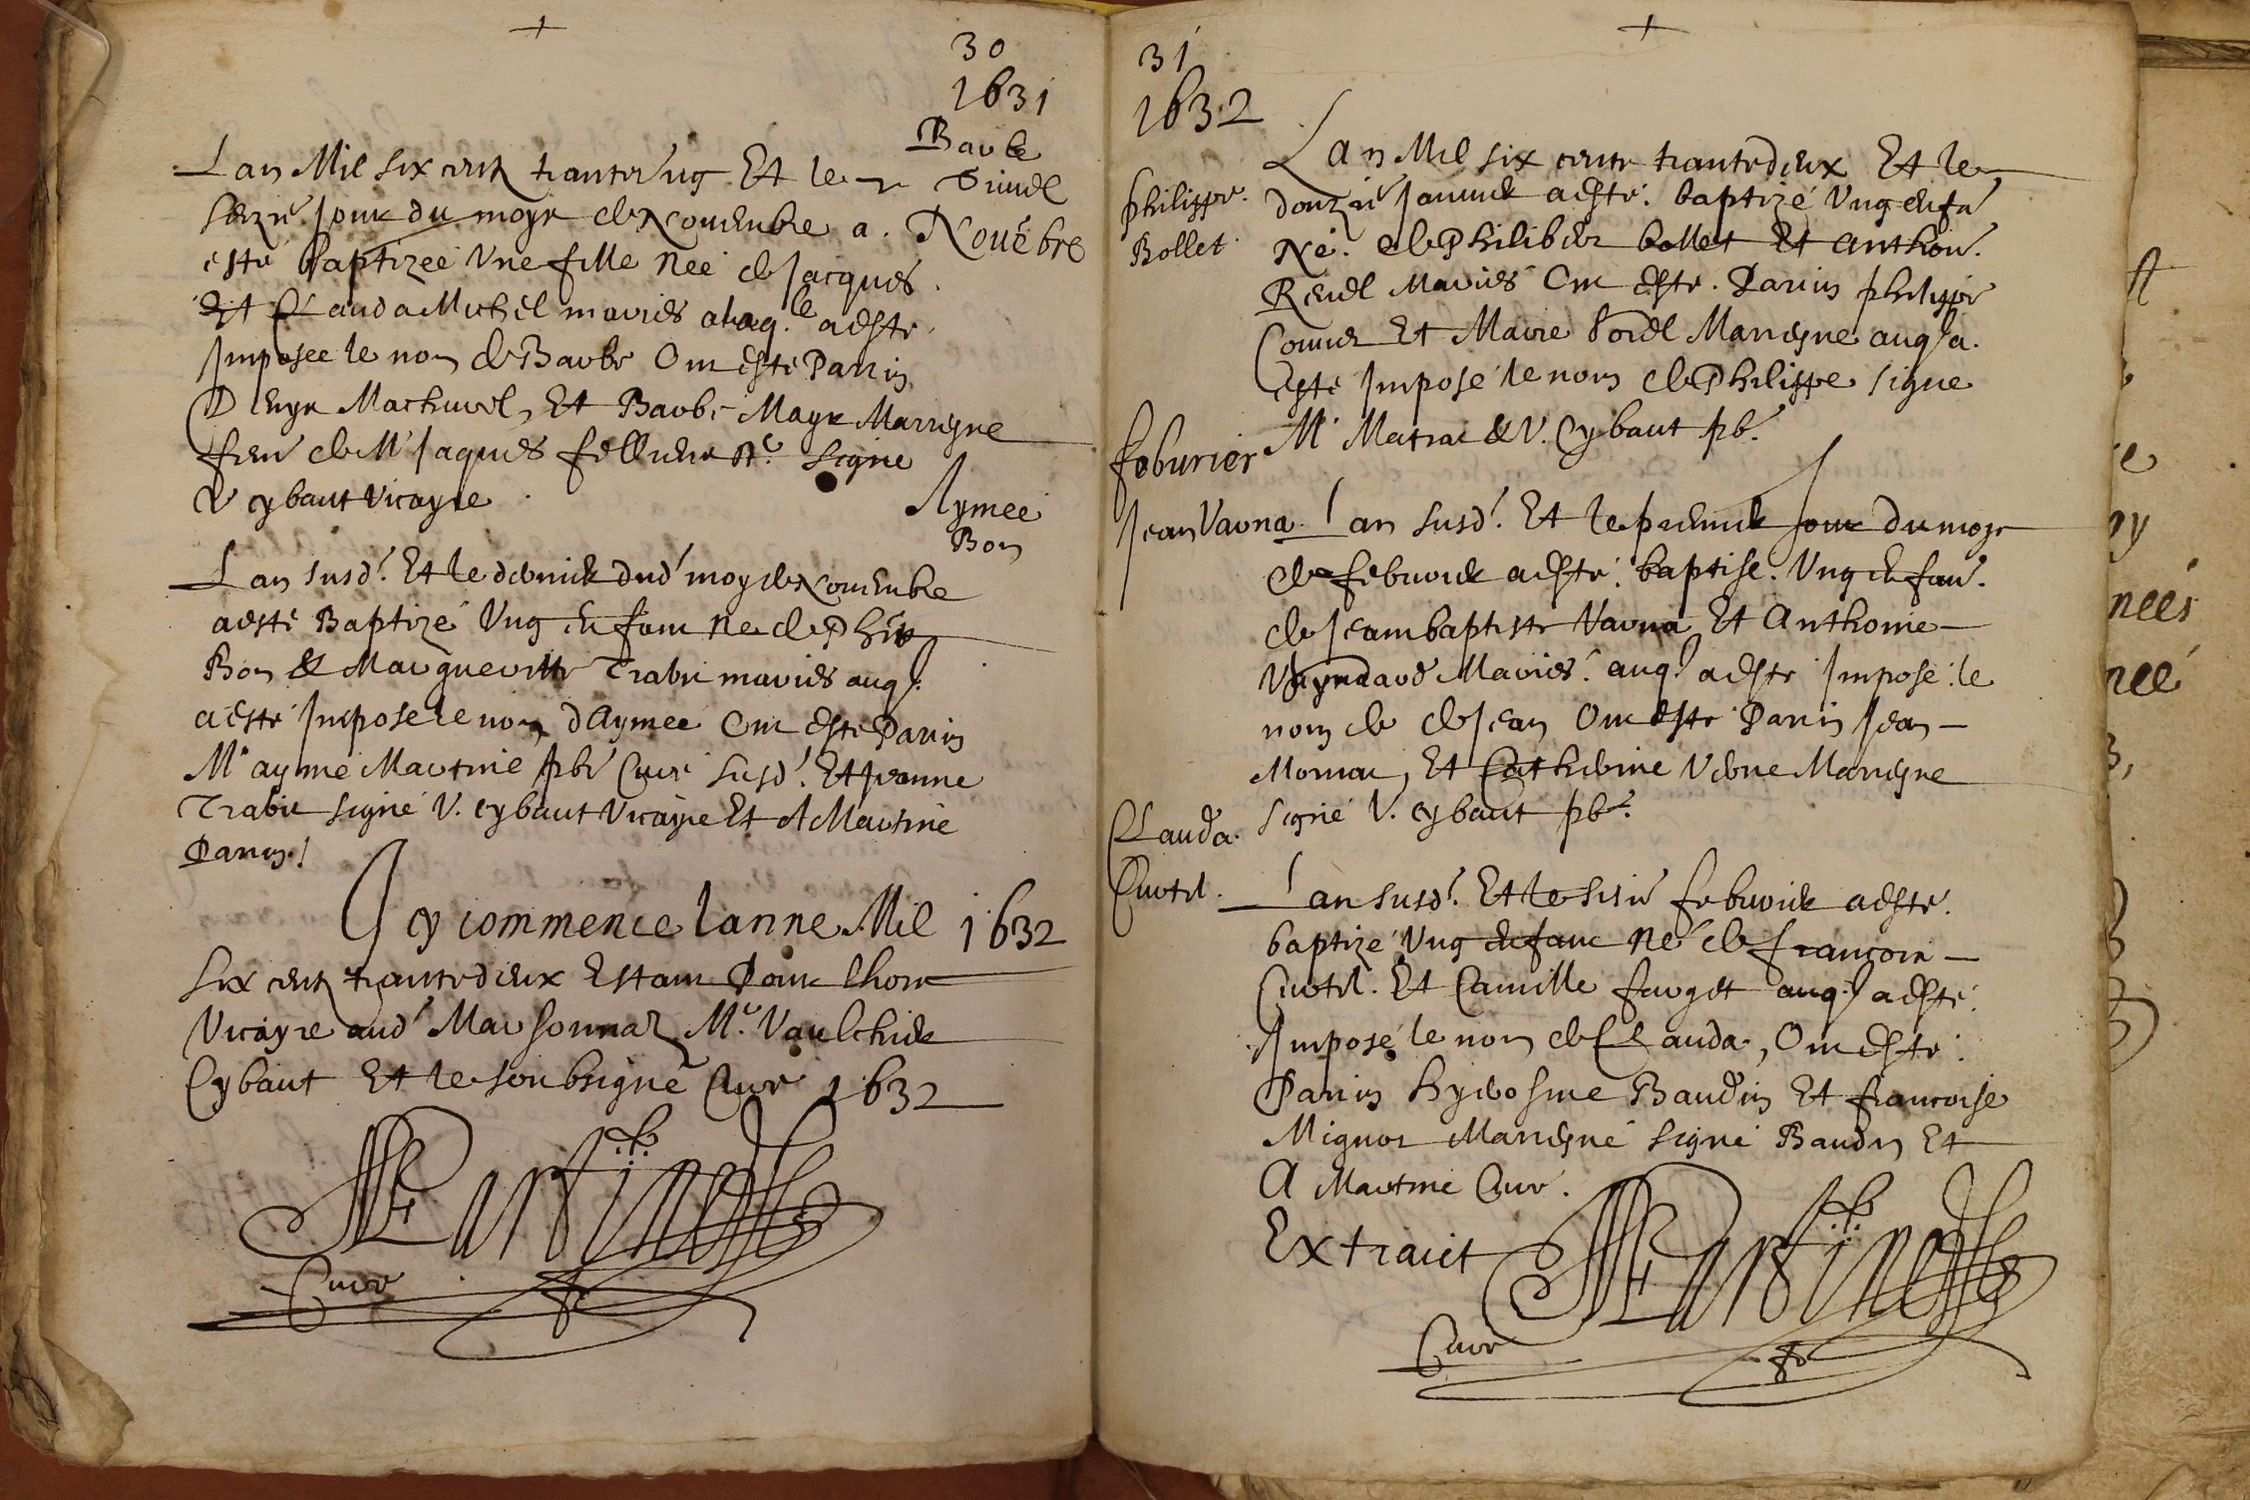 30
1631
Barbe
Novébre
Lan Mil six cens trante ung Et le
sezie Jour du moys de Novembre a
esté baptizeé Une fille neé de Jacques
Et Clauda Michel mariés a laq.le a esté
Imposee le nom de Barbe Ont esté Parrin
Denys Machurel, Et Barbe Mayr Marrayne
feme de Mr Jaques fellrene signé
V cybaut Vicayre
Aymeé
Bon
Lan susd.t Et le dernier dud.t moy de Novembre
a esté Baptizé Ung Enfant né de Phil.
Bon & Margueritte Trabu mariés auq.l
a esté Imposé le nom dAymeé Ont esté Parrin
Mr aymé Martiné pbr Curé susd.t Et Jeanne
Trabu signé V. cybaut Vicayre Et A Martiné
Parrin
Icy commence lanne Mil 1632
six cens trante deux Estant Pour lhors
Vicayre aud.t Marsonnaz Mr. Vaulchier
Cybaut Et le soubsigné Curé 1632
Martiné pb
Curé
31
1632
Philippe
Bollet
Lan Mil six cents trante deux Et le
douzie Janvier a esté baptizé Ung enfa
Né de Philibert bollet Et anthoi.
Revel Mariés Ont esté Parrin philippe
Convert Et Marie Morel Marrayne auq.l a
esté Imposé le nom de Philippe signé
M. Matrai & V. Cybaut pbr.
feburier
Jean Varna
lan susd.t Et le premier Jour du moys
de febvrier a esté baptisé Ung Enfan.
de Jean baptiste Varna Et Anthoine
Mariés auq.l a esté Imposé le
nom de de Jean Ont esté Parrin Jean
Mornai, Et Catherine Verne Marrayne
signé V. cybaut pbr.
Clauda
Curtil
lan susd.t Et le sisié febvrier a esté
baptizé Ung Enfant né de francois
Curtil Et Camille furget auq.l a esté
Imposé le nom de Clauda, Ont esté
Parrin hyerosme Baudin Et francoise
Mignot Marrayne signé Baudin Et
A Martiné Curé.
Extraict Martiné pb
Curé